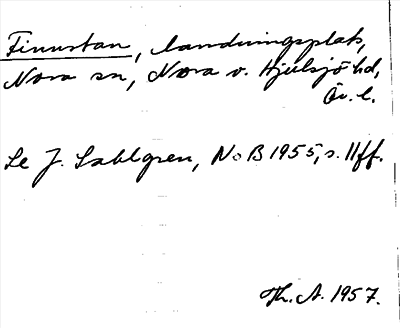 Finnstan, landningsplats,
Nora sn, Nora o. Hjulsjö hd,
Ör. l.
Se J. Sahlgren, NoB 1955, s. 11 ff.
Th. A. 1957.